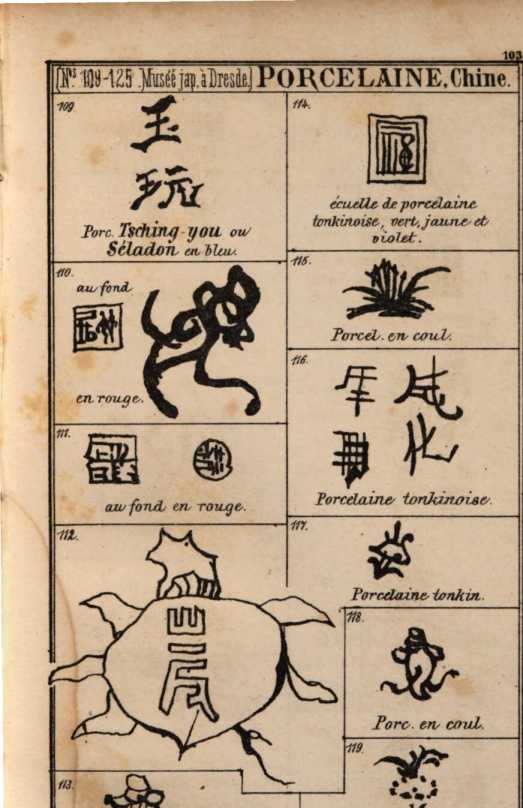 103
(Nos 109-125. Muséé jap. à Dresde.) PORCELAINE, Chine.
109.
玉
玩
Porc. Tsching-you ou
Séladon en bleu.
110.
au fond
en rouge.
111.
au fond en rouge.
112.
113.
114.
écuelle de porcelaine
tonkinoise, vert, jaune et
violet.
115.
Porcel. en coul.
116.
年 成
化
Porcelaine tonkinoise.
117.
Porcelaine tonkin.
118.
Porc. en coul.
119.